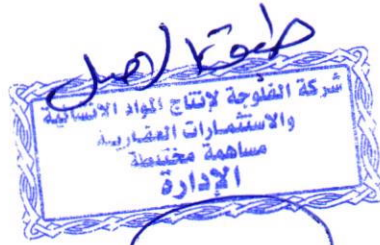 طبق الاصل
شركة الفلوجة لإنتاج المواد الانشائية
والاستثمارات العقارية
مساهمة مختلطة
الإدارة